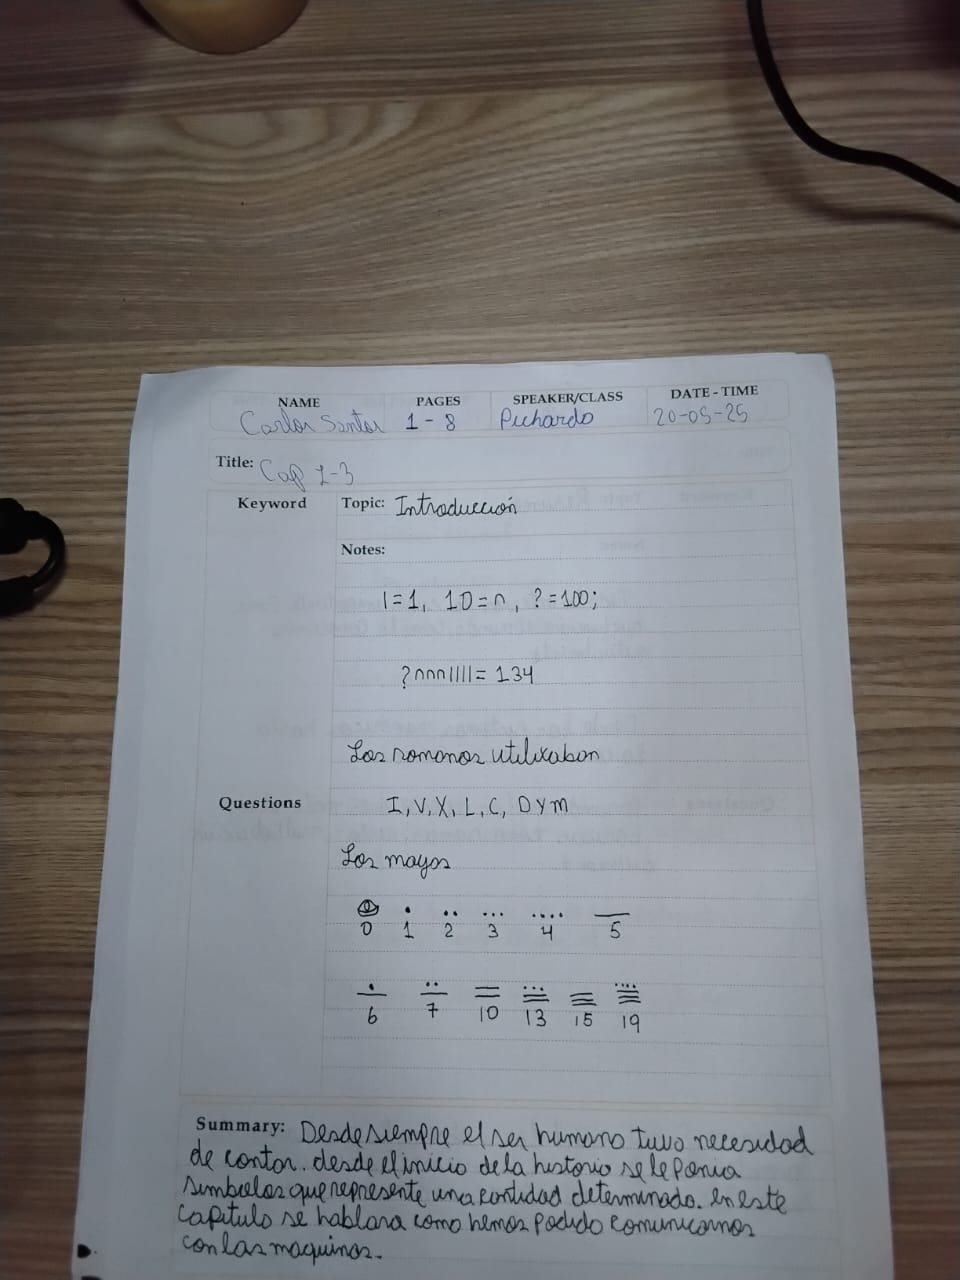 NAME PAGES SPEAKER/CLASS DATE - TIME
Carlos Santos 1 - 8 Pichardo 20-05-25
Title: Cap 1-3
Keyword Topic: Introducción
Notes:
| = 1, 10 = ∩, ? = 100;
? ∩∩∩ |||| = 134
Los romanos utilixaban
Questions I, V, X, L, C, D y M
Los mayas
0 1 2 3 4 5
6 7 10 13 15 19
Summary: Desde siempre el ser humano tuvo necesidad
de contar. desde el inicio de la historia se le ponia
simbolos que represente una cantidad determinada. en este
capitulo se hablara como hemos podido comunicarnos
con las maquinas.